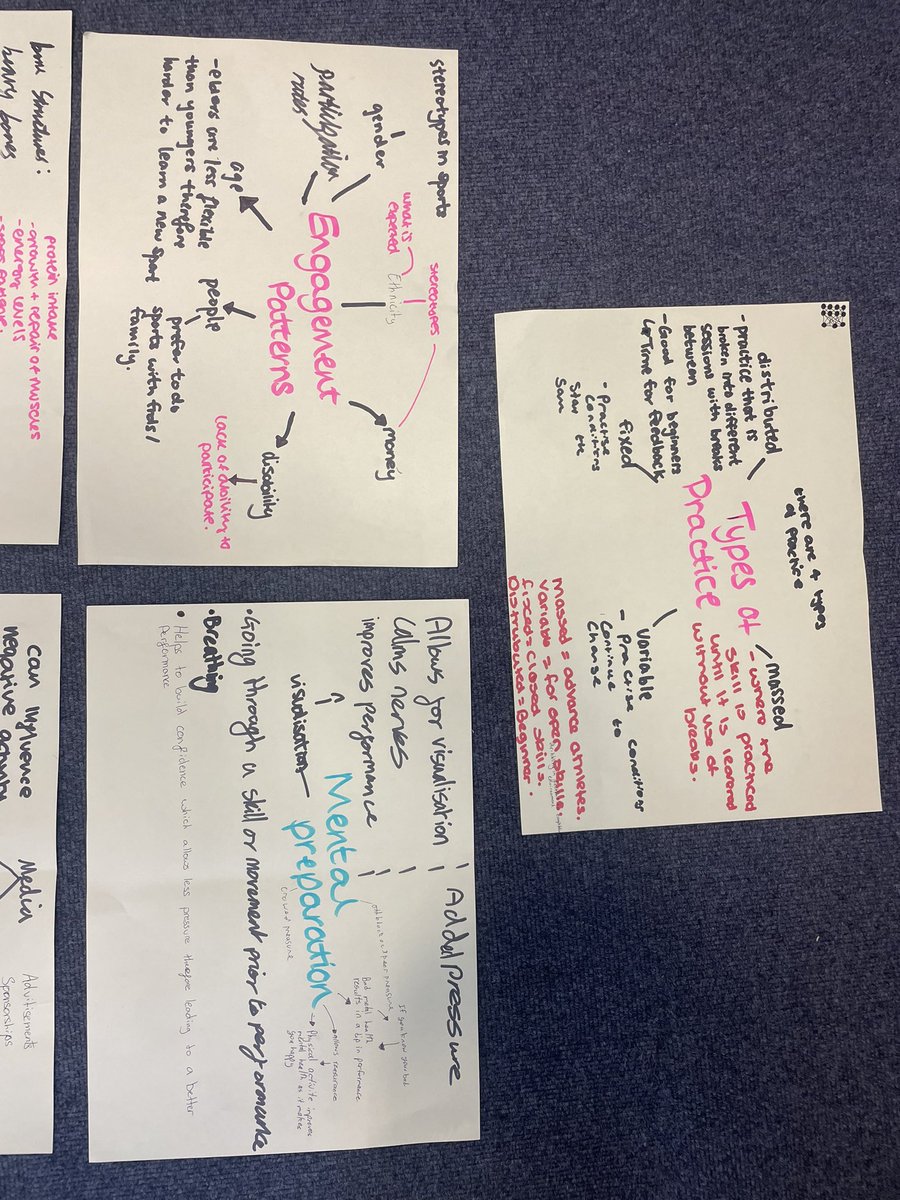 there are 4 types
of practice
Types of
Practice
distributed
- practice that is
broken into different
sessions with breaks
between
- Good for beginners
↳ Time for feedback
massed
- where the
skill is practiced
until it is learered
without use of
breaks.
fixed
- Practise
Conditions
Stay the
Sam
variable
- Pracise conditions
Continue to
Change
Massed = advane athletes.
Variable = for open skills.
fixced = Closed skills.
Distrubuted = Beginner.
stereotypes in sports
gender
participation
rates
Engagement
Patterns
what is
expected
stereotypes
Ethnicity
money
age
- elders are less flexible
than youngers therefore
harder to learn a new sport
people
prefer to do
sports with frids/
family.
disability
Lack of ability to
participate.
Allows for visualisation
Calms nerves
improves performance
Added pressure
Mental
preparation
visualisation
If you know your bad
Bad metal health
results in a dip in performance
crowed pressure
allows reassurance
Physical activite improves
mental health as it makes
you happy
• Going through a skill or movement prior to performance
• Breathing
• Helps to build confidence which allows less pressure therefore leading to a better
performance
bone Structures:
protein intake
- growth + repair of muscles
- energy levels
can influence
negative
Media
Advitisements
Sponsorships